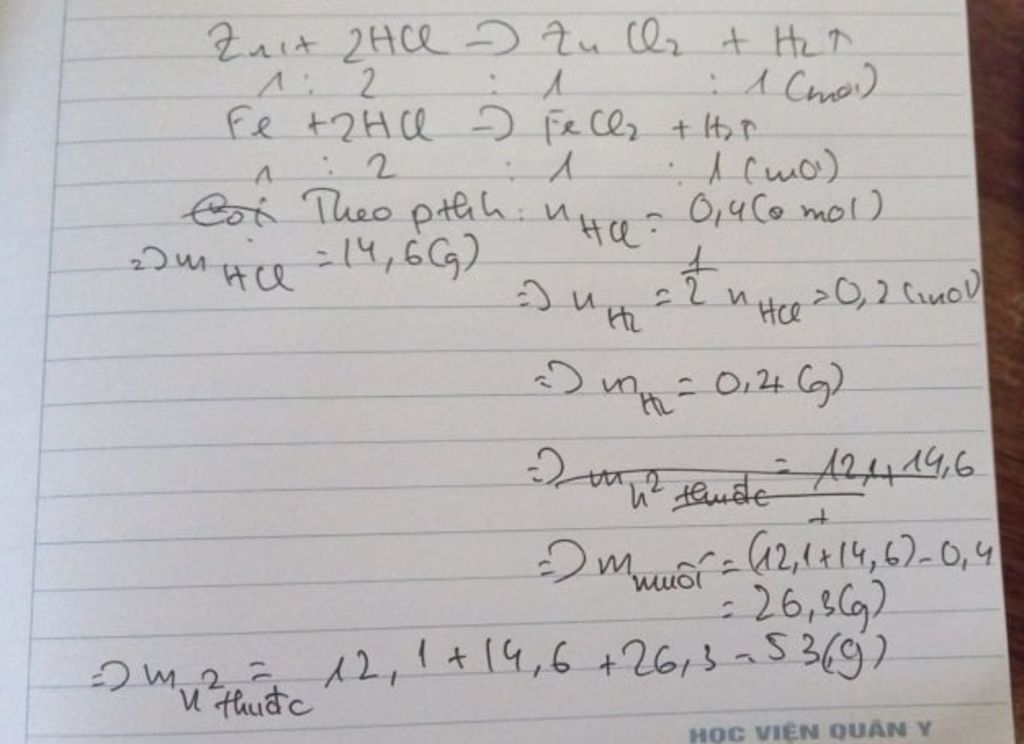 Zn + 2HCl => ZnCl₂ + H₂↑
1 : 2 : 1 : 1 (mol)
Fe + 2HCl => FeCl₂ + H₂↑
1 : 2 : 1 : 1 (mol)
Theo pthh: n HCl = 0,4 (mol)
=> m HCl = 14,6(g)
=> n H₂ = 1/2 n HCl = 0,2 (mol)
=> m H₂ = 0,4 (g)
=> m n² thuốc = 12,1 + 14,6
+
=> m muối = (12,1+14,6) - 0,4
= 26,3(g)
=> m n² thuốc = 12,1 + 14,6 + 26,3 = 53(g)
HỌC VIỆN QUÂN Y